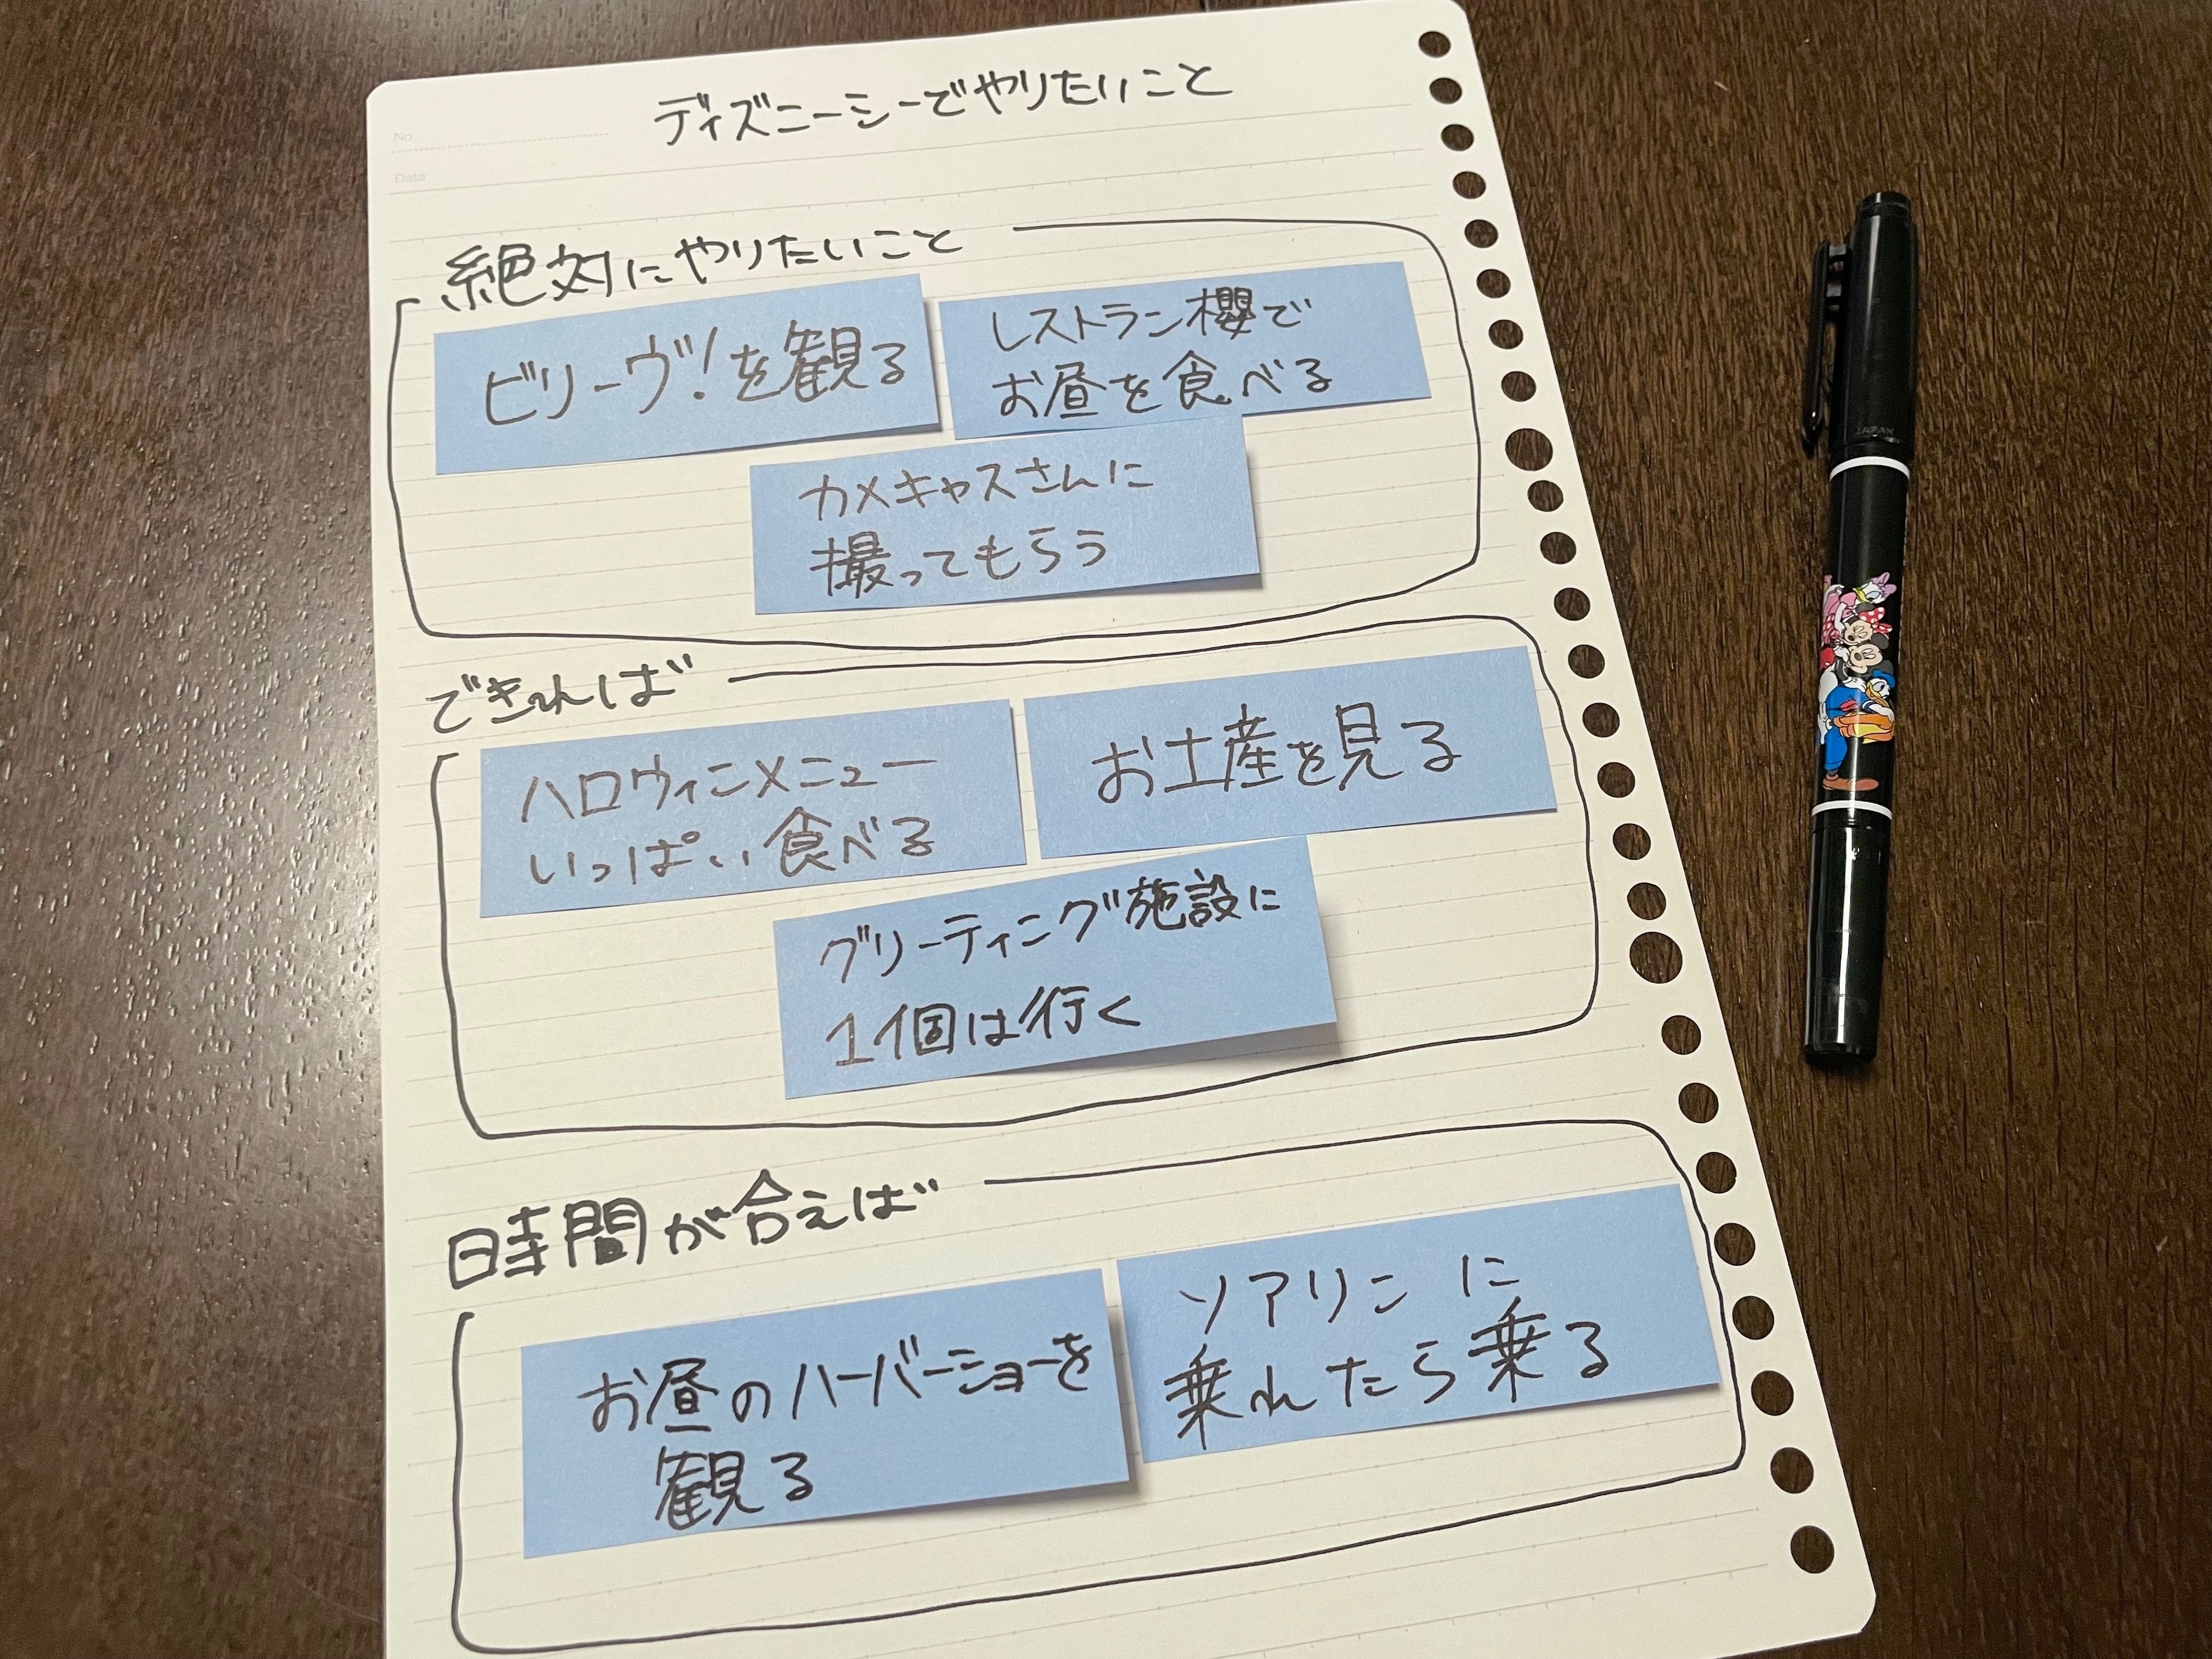 No.
Date
ディズニーシーでやりたいこと
絶対にやりたいこと
ビリーヴ!を観る
レストラン櫻で
お昼を食べる
カメキャスさんに
撮ってもらう
できれば
ハロウィンメニュー
いっぱい食べる
お土産を見る
グリーティング施設に
1個は行く
時間が合えば
お昼のハーバーショーを
観る
ソアリンに
乗れたら乗る
JAPAN